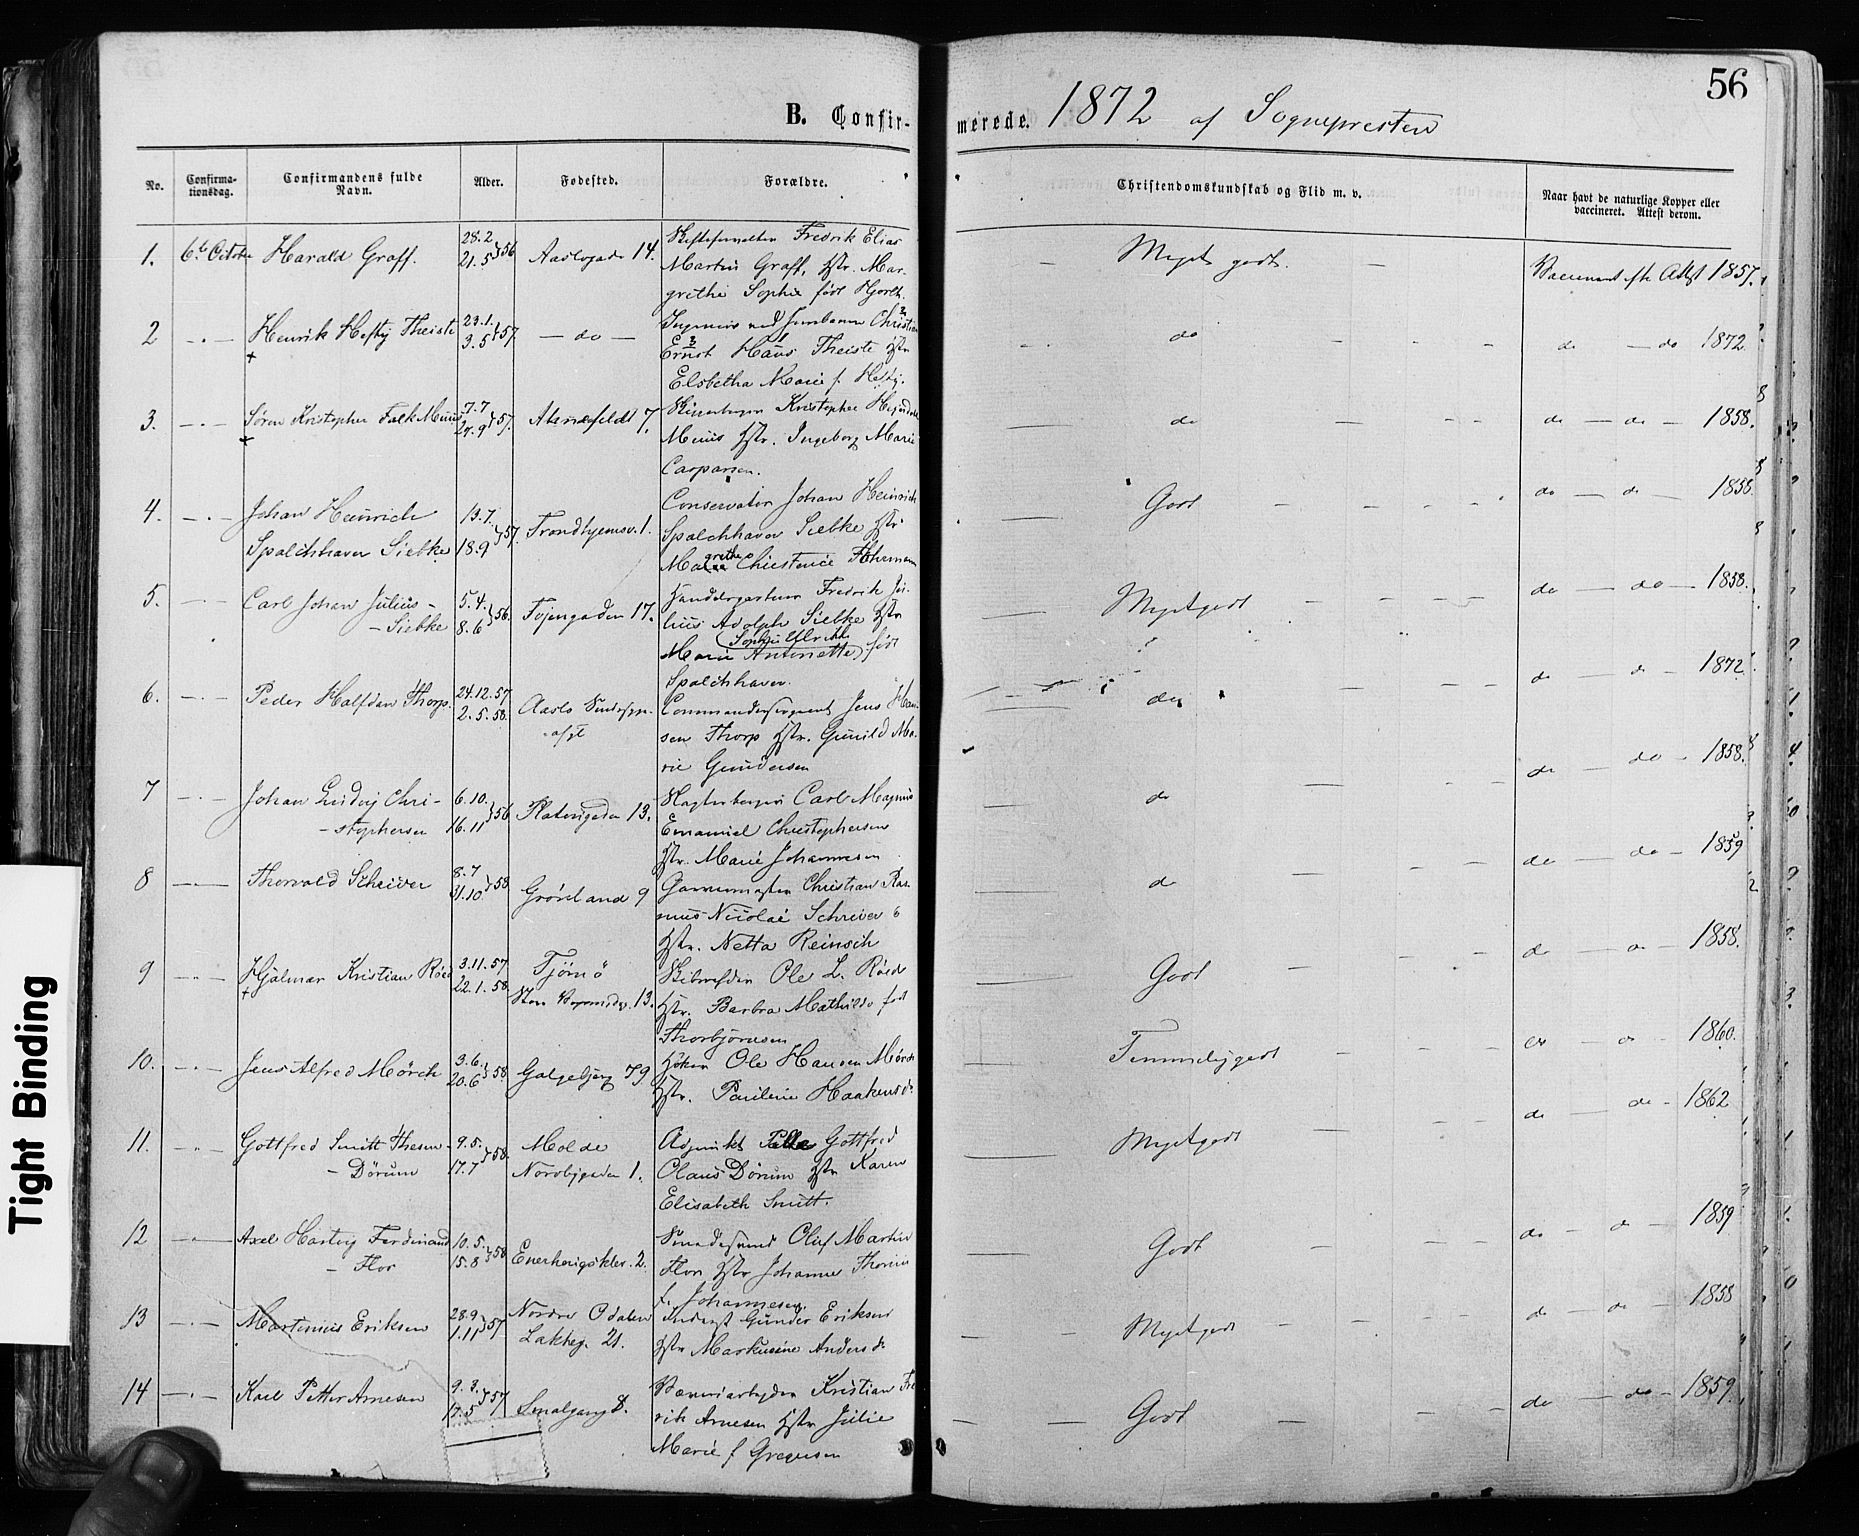 56
B. Confirmerede. 1872 af Sognepresten
No. Confirmationsdag. Confirmandens fulde Navn. Alder. Fødested. Forældre. Christendomskundskab og Flid m. v. Naar havt de naturlige Kopper eller vaccineret. Attest derom.
1. 6te October Harald Graff. 28.2 21.5 } 56 14. Fredrik Elias
Martin Graff, Hstr. Mar-
grethe Sophie født Hjorth. Meget godt. 1857.
2 — " — Henrik Hefty Theiste 23.1. 3.5 } 57. — do — Christian
Ernst Hans Theiste Hstr
Elsbetha Marie f. Hefty. do do — do 1872.
3. — " — Søren Kristopher Falk Muus 7.7 29.9 } 57. Akersfeldt 7. Kristopher
Muus Hstr. Ingeborg Marie
Casparsen. do do — do — 1858.
4. — " — Johan Heinrich
Spalchhaver Siebke 13.7. 18.9 } 57. Trondhjemsv. 1. Conservator Johan Heinrich
Spalchhaver Siebke Hstr
Margrethe Christence
Godt do — do — 1858.
5. — " — Carl Johan Julius -
- Siebke 5.4. 8.6 } 56. Tøjengaden 17. Fredrik Ju-
lius Adolph Siebke Hstr
Marie Antonette, født
Spalchhaver. Meget godt do — do — 1858.
6. — " — Peder Halfdan Thorp. 24.12.57 2.5.58. Commandersergeant Jens Han-
sen Thorp Hstr. Gunild Ma-
rie Gundersen do do — do — 1872.
7 — " — Johan Ludvig Chri-
- stophersen 6.10. 16.11 } 56 Platousgaden 13. Carl Magnus
Emanuel Christophersen
Hstr. Marie Johannesen do do — do — 1858.
8 — " — Thorvald Schriver 8.7 31.10 } 58 Grønland 9 Christian Ras-
mus Nicolai Schriver
Hstr. Netta Reinsch do do — do — 1859
9 — " — Hjalmar Kristian Røed 3.11.57 22.1.58. Tjømø
13. Ole L. Røed
Hstr. Barbra Mathilde født
Thorbjørnsen Godt do — do — 1858.
10. — " — Jens Alfred Mörch 3.6. 20.6 } 58. Galgebjerg 79 Høker Ole Hansen Mörch
Hstr. Pauline Haakensd. Temmelig godt do — do — 1860.
11. — " — Gottfred Smitt Thesen
- Dørum 9.5. 17.7 } 58. Molde
Nordbygaden 1. Adjunkt Gottfred
Olaus Dørum Hstr Karen
Elisabeth Smitt. Meget godt do — do — 1862
12 — " — Axel Hartvig Ferdinand
- Flor 10.5. 15.8 } 58 Enerhaugsklev. 2. Smedesvend Oluf Martin
Flor Hstr Johanne
f. Johannesen. Godt do — do — 1859
13 — " — Martinius Eriksen 28.9. 1.11 } 57 Nordre Odalen
Lakkeg. 21. Inderst Gunder Eriksen
Hstr Markusine Andersd. Meget godt do — do — 1858
14 — " — Karl Petter Arnesen 9.3. 17.5 } 57 Smalgang 8. Kristian Fre
rik Arnesen Hstr Julie
Marie f Gregersen Godt do — do — 1859.
Tight Binding